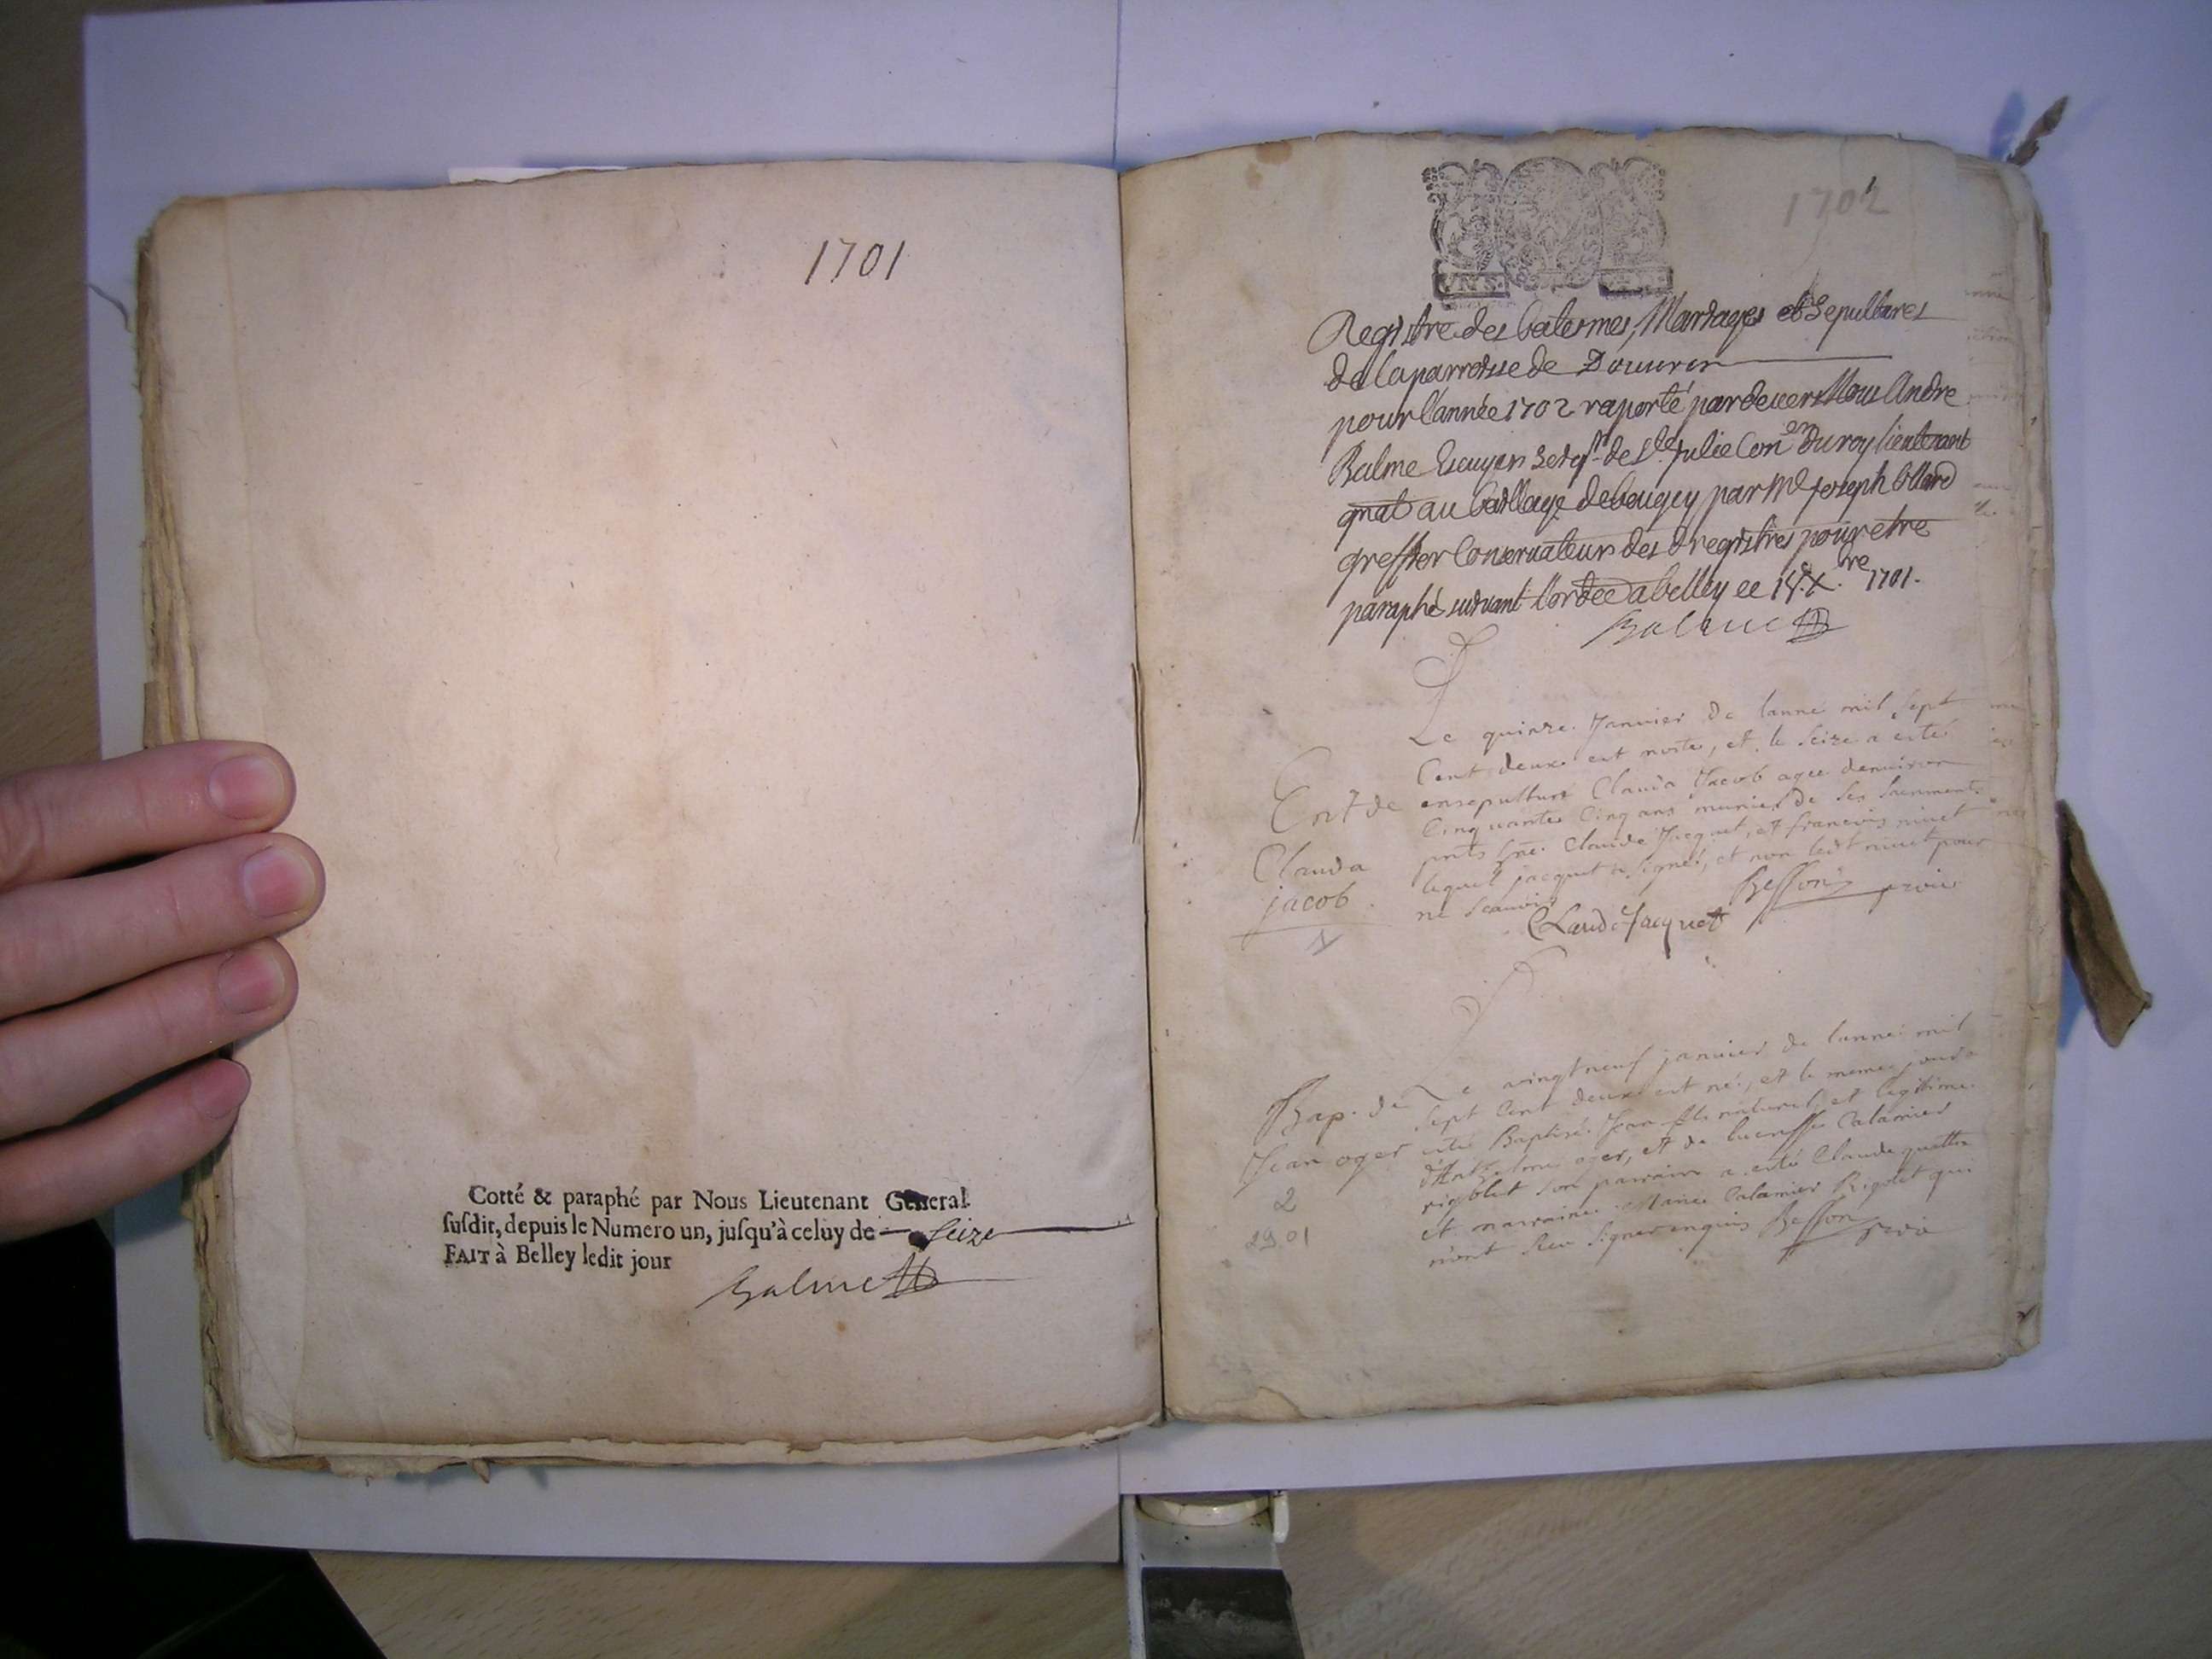 1701
Cotté & paraphé par Nous Lieutenant General
susdit, depuis le Numero un, jusqu'à celuy de seize
FAIT à Belley ledit jour
Balme
1702
Registre des batesmes, Mariages et Sepultures
de la parroisse de Douuren
pour l'année 1702 raporté pardeuers Nous Andre
Balme Escuyer Seigr de Ste Julie Conler du roy lieutenant
gnal au bailliage de bougey par Me Joseph
greffier Conseruateur des d registres pour etre
paraphé suiuant l'ordce a belley ce Xbre 1701.
Balme
Le quinze Januier de lanné mil sept
Cent deux est morte, et le seize a esté
Ent de ensepulturé Clauda Jacob agee denuiron
Cinquante Cinq ans munie de ses Sacrements
Clauda pnts Claude Jacquet, et francois niuet
jacob lequel jacquet a signé, et non ledt niuet pour
ne scauoir Besson
Claude Jacquet
1
Le vingt neuf januier de lanné mil
Bap. de sept Cent deux est né, et le meme jour a
Jean oger esté Baptisé Jean fils naturel et legitime
d'Anthelme oger, et de Calamier
2 son parrain a esté Claude
29.01 et marraine Calamier qui
n'ont sceu signer enquis Besson